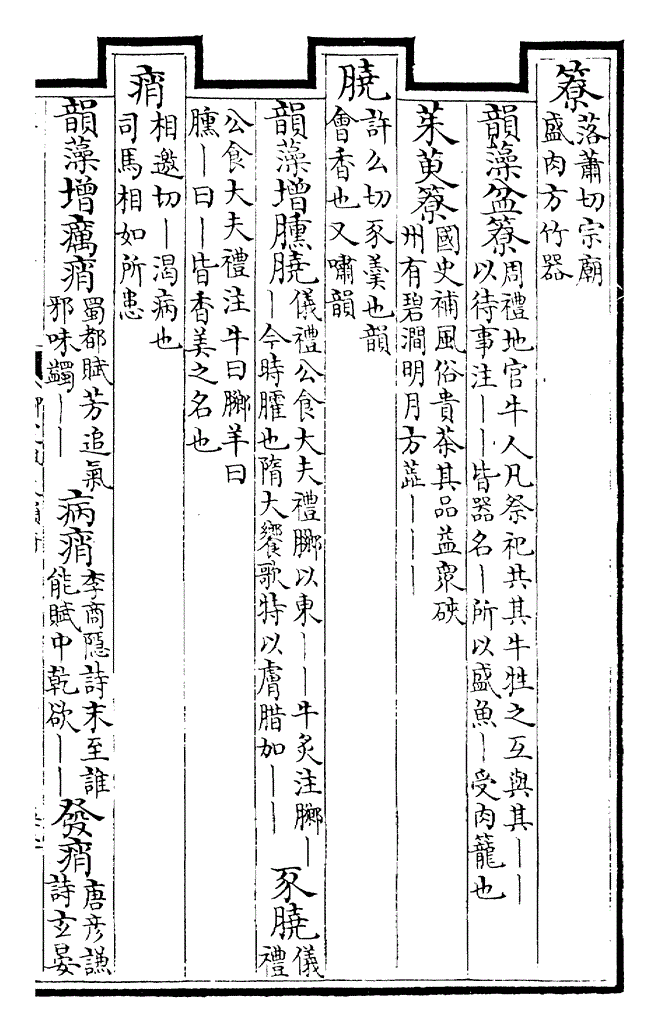 簝落蕭切宗廟
盛肉方竹器
韻藻盆簝周禮地官牛人凡祭祀共其牛牲之互與其——
以待事注——皆器名—所以盛魚—受肉籠也
茱萸簝國史補風俗貴茶其品益衆硤
州有碧澗明月方蘂———
膮許么切豕羹也韻
會香也又嘯韻
韻藻增臐膮儀禮公食大夫禮膷以東——牛炙注膷—
—今時臛也隋大饗歌特以膚腊加——
豕膮儀
禮
公食大夫禮注牛曰膷羊曰
臐—曰—皆香美之名也
痟相邀切—渴病也
司馬相如所患
韻藻增癘痟蜀都賦芳追氣
邪味蠲——
病痟李商隱詩末至誰
能賦中乾欲——
發痟唐彥謙
詩玄晏